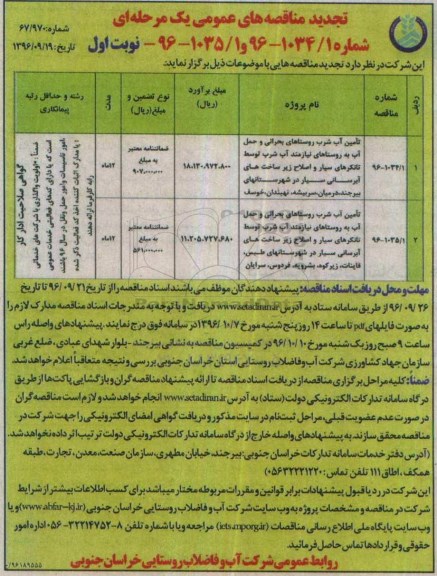 تجدید مناقصه های عمومی یک مرحله ای
شماره ۱۰۳۴/۱-۹۶ و ۱۰۳۵/۱-۹۶ - نوبت اول
شماره: ۶۷/۹۷۰
تاریخ: ۱۳۹۶/۰۹/۱۹
این شرکت در نظر دارد تجدید مناقصه هایی با موضوعات ذیل برگزار نماید:
ردیف
شماره مناقصه
نام پروژه
مبلغ برآورد (ریال)
نوع تضمین و مبلغ (ریال)
مدت
رشته و حداقل رتبه پیمانکاری
۱
۹۶-۱۰۳۴/۱
تأمین آب شرب روستاهای بحرانی و حمل
آب به روستاهای نیازمند آب شرب توسط
تانکرهای سیار و اصلاح زیر ساخت های
آبرسانی سیار در شهرستانهای
بیرجند، درمیان، سربیشه، نهبندان، خوسف
۱۸.۱۳۰.۹۷۲.۸۰۰
ضمانتنامه معتبر
به مبلغ
۹۰۷.۰۰۰.۰۰۰
۱۲ماه
۲
۹۶-۱۰۳۵/۱
تأمین آب شرب روستاهای بحرانی و حمل
آب به روستاهای نیازمند آب شرب توسط
تانکرهای سیار و اصلاح زیر ساخت های
آبرسانی سیار در شهرستانهای طبس،
قاینات، زیرکوه، بشرویه، فردوس، سرایان
۱۱.۲۰۵.۷۲۷.۶۸۰
ضمانتنامه معتبر
به مبلغ
۵۶۱.۰۰۰.۰۰۰
۱۲ماه
مهلت و محل دریافت اسناد مناقصه: پیشنهاد دهندگان موظف می باشند اسناد مناقصه را از تاریخ ۹۶/۰۹/۲۱ تا تاریخ
۹۶/۰۹/۲۶ از طریق سامانه ستاد به آدرس www.setadiran.ir دریافت و با توجه به مندرجات اسناد مناقصه مدارک لازم را
به صورت فایلهای pdf تا ساعت ۱۴ روز پنج شنبه مورخ ۱۳۹۶/۱۰/۷ در سامانه فوق درج نمایند. پیشنهادهای واصله راس
ساعت ۹ صبح روز یک شنبه مورخ ۹۶/۱۰/۱۰ در کمیسیون مناقصه به نشانی بیرجند - بلوار شهدای عبادی، ضلع غربی
سازمان جهاد کشاورزی شرکت آب و فاضلاب روستایی استان خراسان جنوبی بررسی و نتیجه متعاقباً اعلام خواهد شد.
ضمناً: کلیه مراحل برگزاری مناقصه از دریافت اسناد مناقصه تا ارائه پیشنهاد مناقصه گران و بازگشایی پاکت ها از طریق
درگاه سامانه تدارکات الکترونیکی دولت (ستاد) به آدرس www.setadiran.ir انجام خواهد شد و لازم است مناقصه گران
در صورت عدم عضویت قبلی، مراحل ثبت نام در سایت مذکور و دریافت گواهی امضای الکترونیکی را جهت شرکت در
مناقصه محقق سازند. به پیشنهادهای واصله خارج از درگاه سامانه تدارکات الکترونیکی دولت ترتیب اثر داده نخواهد شد.
(آدرس دفتر خدمات سامانه تدارکات خراسان جنوبی: بیرجند خیابان مطهری، سازمان صنعت، معدن، تجارت، طبقه
همکف، اطاق ۱۱۱ تلفن تماس: ۰۵۶۳۲۲۲۱۲۲۰)
این شرکت در رد یا قبول پیشنهادات برابر قوانین و مقررات مربوطه مختار میباشد برای کسب اطلاعات بیشتر از شرایط
شرکت در مناقصه و مشخصات پروژه به وب سایت شرکت آب و فاضلاب روستایی خراسان جنوبی (www.abfar-kj.ir) و یا
وب سایت پایگاه ملی اطلاع رسانی مناقصات (iets.mporg.ir) مراجعه و یا با شماره تلفن ۸-۳۲۲۱۴۷۵۲-۰۵۶ اداره امور
حقوقی و قراردادها تماس حاصل فرمائید.
روابط عمومی شرکت آب و فاضلاب روستایی خراسان جنوبی